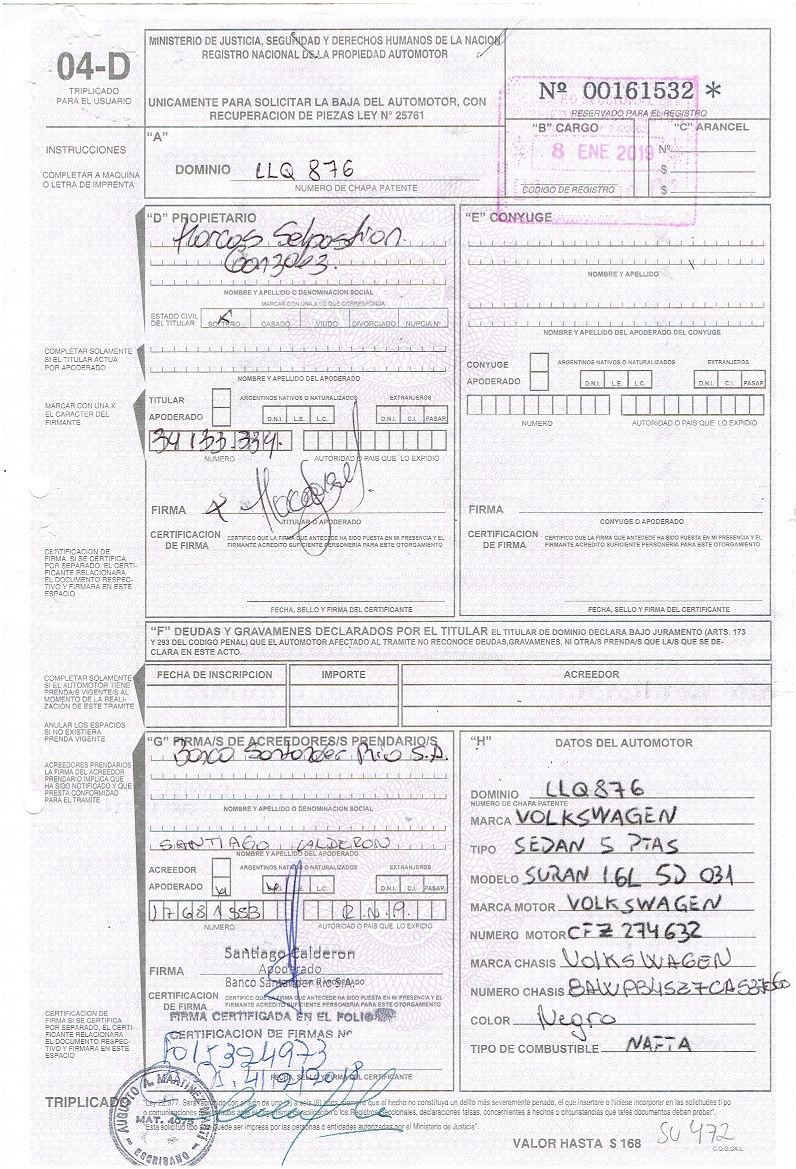 04-D
TRIPLICADO
PARA EL USUARIO
MINISTERIO DE JUSTICIA, SEGURIDAD Y DERECHOS HUMANOS DE LA NACION
REGISTRO NACIONAL DE LA PROPIEDAD AUTOMOTOR
UNICAMENTE PARA SOLICITAR LA BAJA DEL AUTOMOTOR, CON
RECUPERACION DE PIEZAS LEY N° 25761
Nº 00161532 *
RESERVADO PARA EL REGISTRO
"B" CARGO
"C" ARANCEL
8 ENE 2019
Nº
$
$
CODIGO DE REGISTRO
INSTRUCCIONES
COMPLETAR A MAQUINA
O LETRA DE IMPRENTA
"A"
DOMINIO LLQ 876
NUMERO DE CHAPA PATENTE
"D" PROPIETARIO
Marcos Sebastian
Gonzalez.
NOMBRE Y APELLIDO O DENOMINACION SOCIAL
MARCAR CON UNA X LO QUE CORRESPONDA
ESTADO CIVIL
DEL TITULAR
X
SOLTERO CASADO VIUDO DIVORCIADO NUPCIA Nº
COMPLETAR SOLAMENTE
SI EL TITULAR ACTUA
POR APODERADO
NOMBRE Y APELLIDO DEL APODERADO
MARCAR CON UNA X
EL CARACTER DEL
FIRMANTE
TITULAR
APODERADO
ARGENTINOS NATIVOS O NATURALIZADOS
D.N.I. L.E. L.C.
EXTRANJEROS
D.N.I. C.I. PASAP.
34133.334.
NUMERO
AUTORIDAD O PAIS QUE LO EXPIDIO
FIRMA X
TITULAR O APODERADO
CERTIFICACION
DE FIRMA
CERTIFICO QUE LA FIRMA QUE ANTECEDE HA SIDO PUESTA EN MI PRESENCIA Y EL
FIRMANTE ACREDITO SUFICIENTE PERSONERIA PARA ESTE OTORGAMIENTO
FECHA, SELLO Y FIRMA DEL CERTIFICANTE
CERTIFICACION DE
FIRMA. SI SE CERTIFICA
POR SEPARADO, EL CERTI-
FICANTE RELACIONARA
EL DOCUMENTO RESPEC-
TIVO Y FIRMARA EN ESTE
ESPACIO
"E" CONYUGE
NOMBRE Y APELLIDO
NOMBRE Y APELLIDO DEL APODERADO DEL CONYUGE
CONYUGE
APODERADO
ARGENTINOS NATIVOS O NATURALIZADOS
D.N.I. L.E. L.C.
EXTRANJEROS
D.N.I. C.I. PASAP.
NUMERO
AUTORIDAD O PAIS QUE LO EXPIDIO
FIRMA
CONYUGE O APODERADO
CERTIFICACION
DE FIRMA
CERTIFICO QUE LA FIRMA QUE ANTECEDE HA SIDO PUESTA EN MI PRESENCIA Y EL
FIRMANTE ACREDITO SUFICIENTE PERSONERIA PARA ESTE OTORGAMIENTO
FECHA, SELLO Y FIRMA DEL CERTIFICANTE
"F" DEUDAS Y GRAVAMENES DECLARADOS POR EL TITULAR EL TITULAR DE DOMINIO DECLARA BAJO JURAMENTO (ARTS. 173
Y 293 DEL CODIGO PENAL) QUE EL AUTOMOTOR AFECTADO AL TRAMITE NO RECONOCE DEUDAS, GRAVAMENES, NI OTRA/S PRENDA/S QUE LA/S QUE SE DE-
CLARA EN ESTE ACTO.
COMPLETAR SOLAMENTE
SI EL AUTOMOTOR TIENE
PRENDA/S VIGENTE/S AL
MOMENTO DE LA REALI-
ZACION DE ESTE TRAMITE
FECHA DE INSCRIPCION
IMPORTE
ACREEDOR
ANULAR LOS ESPACIOS
SI NO EXISTIERA
PRENDA VIGENTE
ACREEDORES PRENDARIOS
LA FIRMA DEL ACREEDOR
PRENDARIO IMPLICA QUE
HA SIDO NOTIFICADO Y QUE
PRESTA CONFORMIDAD
PARA EL TRAMITE
"G" FIRMA/S DE ACREEDORES/S PRENDARIO/S
Banco Santander Rio S.A.
NOMBRE Y APELLIDO O DENOMINACION SOCIAL
SANTIAGO CALDERON
NOMBRE Y APELLIDO DEL APODERADO
ACREEDOR
APODERADO X
ARGENTINOS NATIVOS O NATURALIZADOS
L.E. L.C.
EXTRANJEROS
D.N.I. C.I. PASAP.
NUMERO
AUTORIDAD O PAIS QUE LO EXPIDIO
Santiago Calderon
FIRMA
Apoderado
Banco Santander Rio S.A.
CERTIFICACION
DE FIRMA
CERTIFICO QUE LA FIRMA QUE ANTECEDE HA SIDO PUESTA EN MI PRESENCIA Y EL
FIRMANTE ACREDITO SUFICIENTE PERSONERIA PARA ESTE OTORGAMIENTO
FIRMA CERTIFICADA EN EL FOLIO
CERTIFICACION DE FIRMAS Nº
F015324973
4/12/2018
FECHA, SELLO Y FIRMA DEL CERTIFICANTE
CERTIFICACION DE
FIRMA SI SE CERTIFICA
POR SEPARADO, EL CERTI-
FICANTE RELACIONARA
EL DOCUMENTO RESPEC-
TIVO Y FIRMARA EN ESTE
ESPACIO
"H" DATOS DEL AUTOMOTOR
DOMINIO LLQ876
NUMERO DE CHAPA PATENTE
MARCA VOLKSWAGEN
TIPO SEDAN 5 PTAS
MODELO SURAN 1.6L 5D 031
MARCA MOTOR VOLKSWAGEN
NUMERO MOTOR CFZ 274632
MARCA CHASIS VOLKSWAGEN
NUMERO CHASIS
COLOR Negro
TIPO DE COMBUSTIBLE NAFTA
TRIPLICADO
AUGUSTO A. MARTINEZ
MAT. 4075
ESCRIBANO
"Esta solicitud tipo sólo puede ser impresa por las personas o entidades autorizadas por el Ministerio de Justicia"
VALOR HASTA $ 168
SU 472